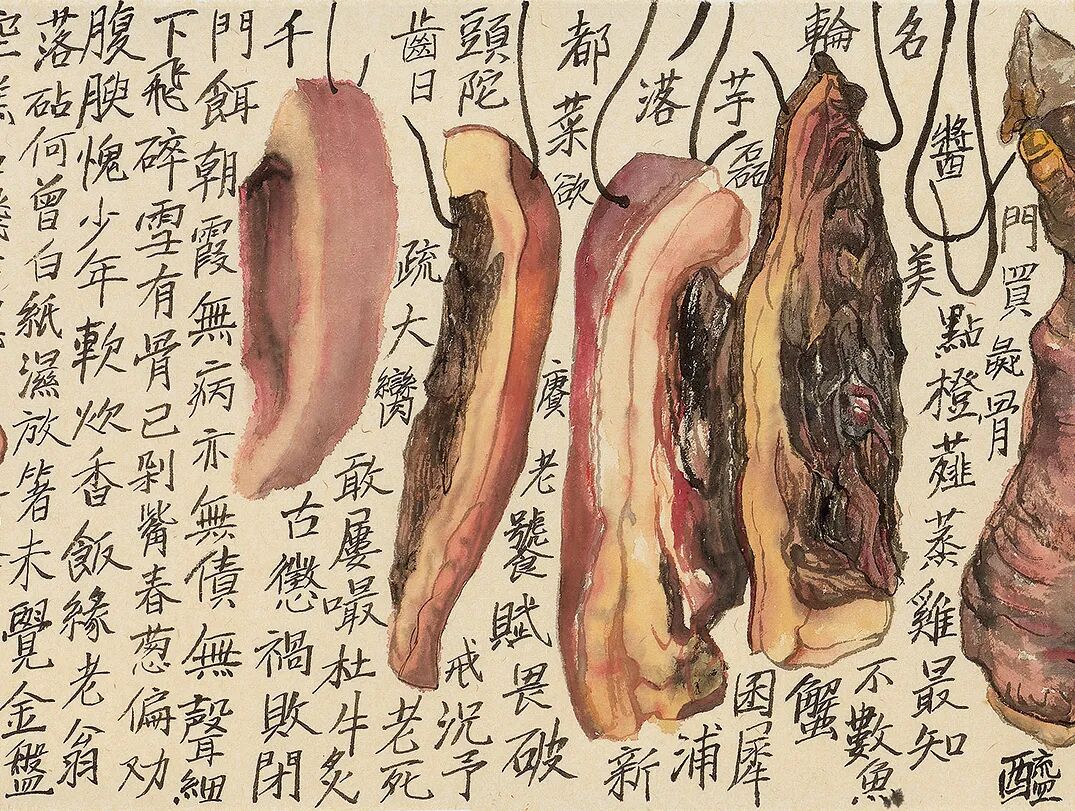 門買彘骨醯
醬點橙薤蒸雞最知
名美不數魚蟹
輪囷犀
浦芋磊落新
都菜欲賡老饕賦畏破
頭陀戒況予
齒日疏大臠敢屢嘬杜老死牛炙
千古懲禍敗閉
門餌朝霞無病亦無債無聲細
下飛碎雪有骨已剁觜春葱偏劝
腹腴愧少年軟炊香飯緣老翁
落砧何曾白紙濕放箸未覺金盤
空